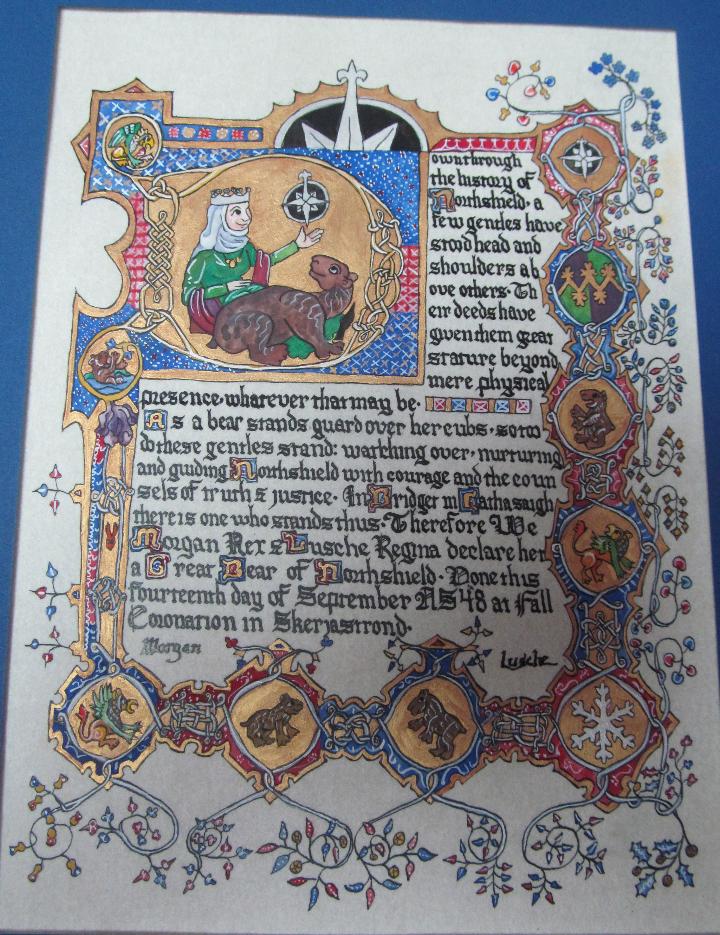 Down through
the history of
Northshield · a
few gentles have
stood head and
shoulders ab
ove others · Th
eir deeds have
given them great
stature beyond
mere physical
presence · whatever that may be ·
As a bear stands guard over her cubs · so too
do these gentles stand: watching over · nurturing
and guiding Northshield with courage and the coun
sels of truth & justice · In Bridget ni Cathasaigh
there is one who stands thus · Therefore We
Morgan Rex & Lusche Regina declare her
a Great Bear of Northshield · Done this
fourteenth day of September AS 48 at Fall
Coronation in Skerjastrond ·
Morgan
Lusche